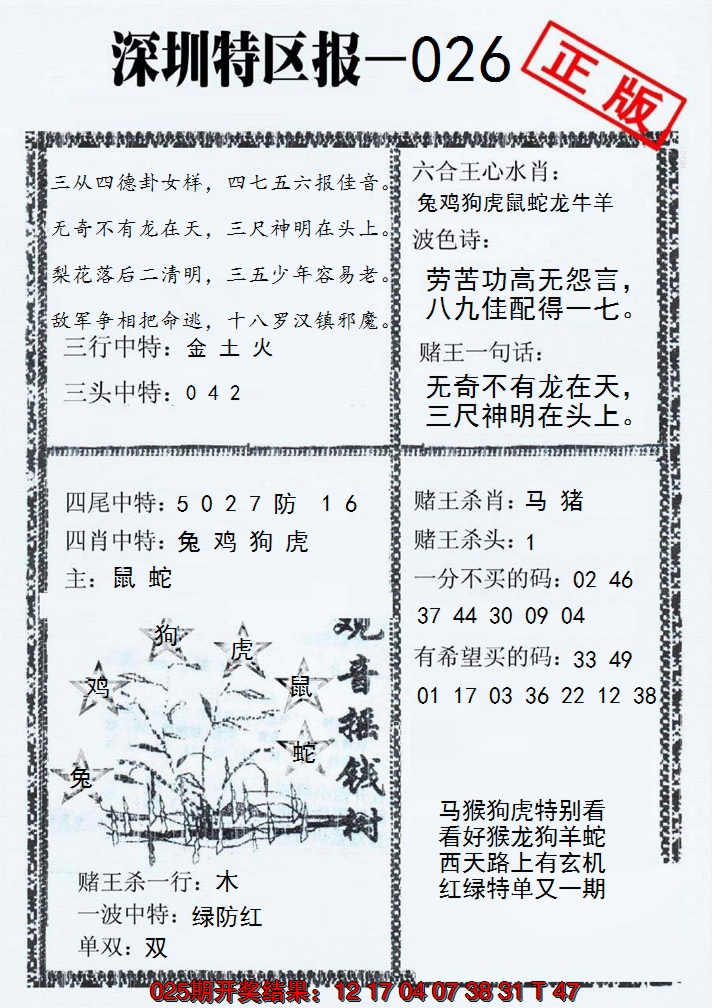 深圳特区报—026
正版
三从四德卦女样，四七五六报佳音。
无奇不有龙在天，三尺神明在头上。
梨花落后二清明，三五少年容易老。
敌军争相把命逃，十八罗汉镇邪魔。
三行中特：金 土 火
三头中特：0 4 2
六合王心水肖：
兔鸡狗虎鼠蛇龙牛羊
波色诗：
劳苦功高无怨言，
八九佳配得一七。
赌王一句话：
无奇不有龙在天，
三尺神明在头上。
四尾中特：5 0 2 7 防 1 6
四肖中特：兔 鸡 狗 虎
主：鼠 蛇
狗
虎
鸡
鼠
蛇
兔
观音摇钱树
赌王杀一行：木
一波中特：绿防红
单双：双
赌王杀肖：马 猪
赌王杀头：1
一分不买的码：02 46
37 44 30 09 04
有希望买的码：33 49
01 17 03 36 22 12 38
马猴狗虎特别看
看好猴龙狗羊蛇
西天路上有玄机
红绿特单又一期
025期开奖结果：12 17 04 07 38 31 T 47